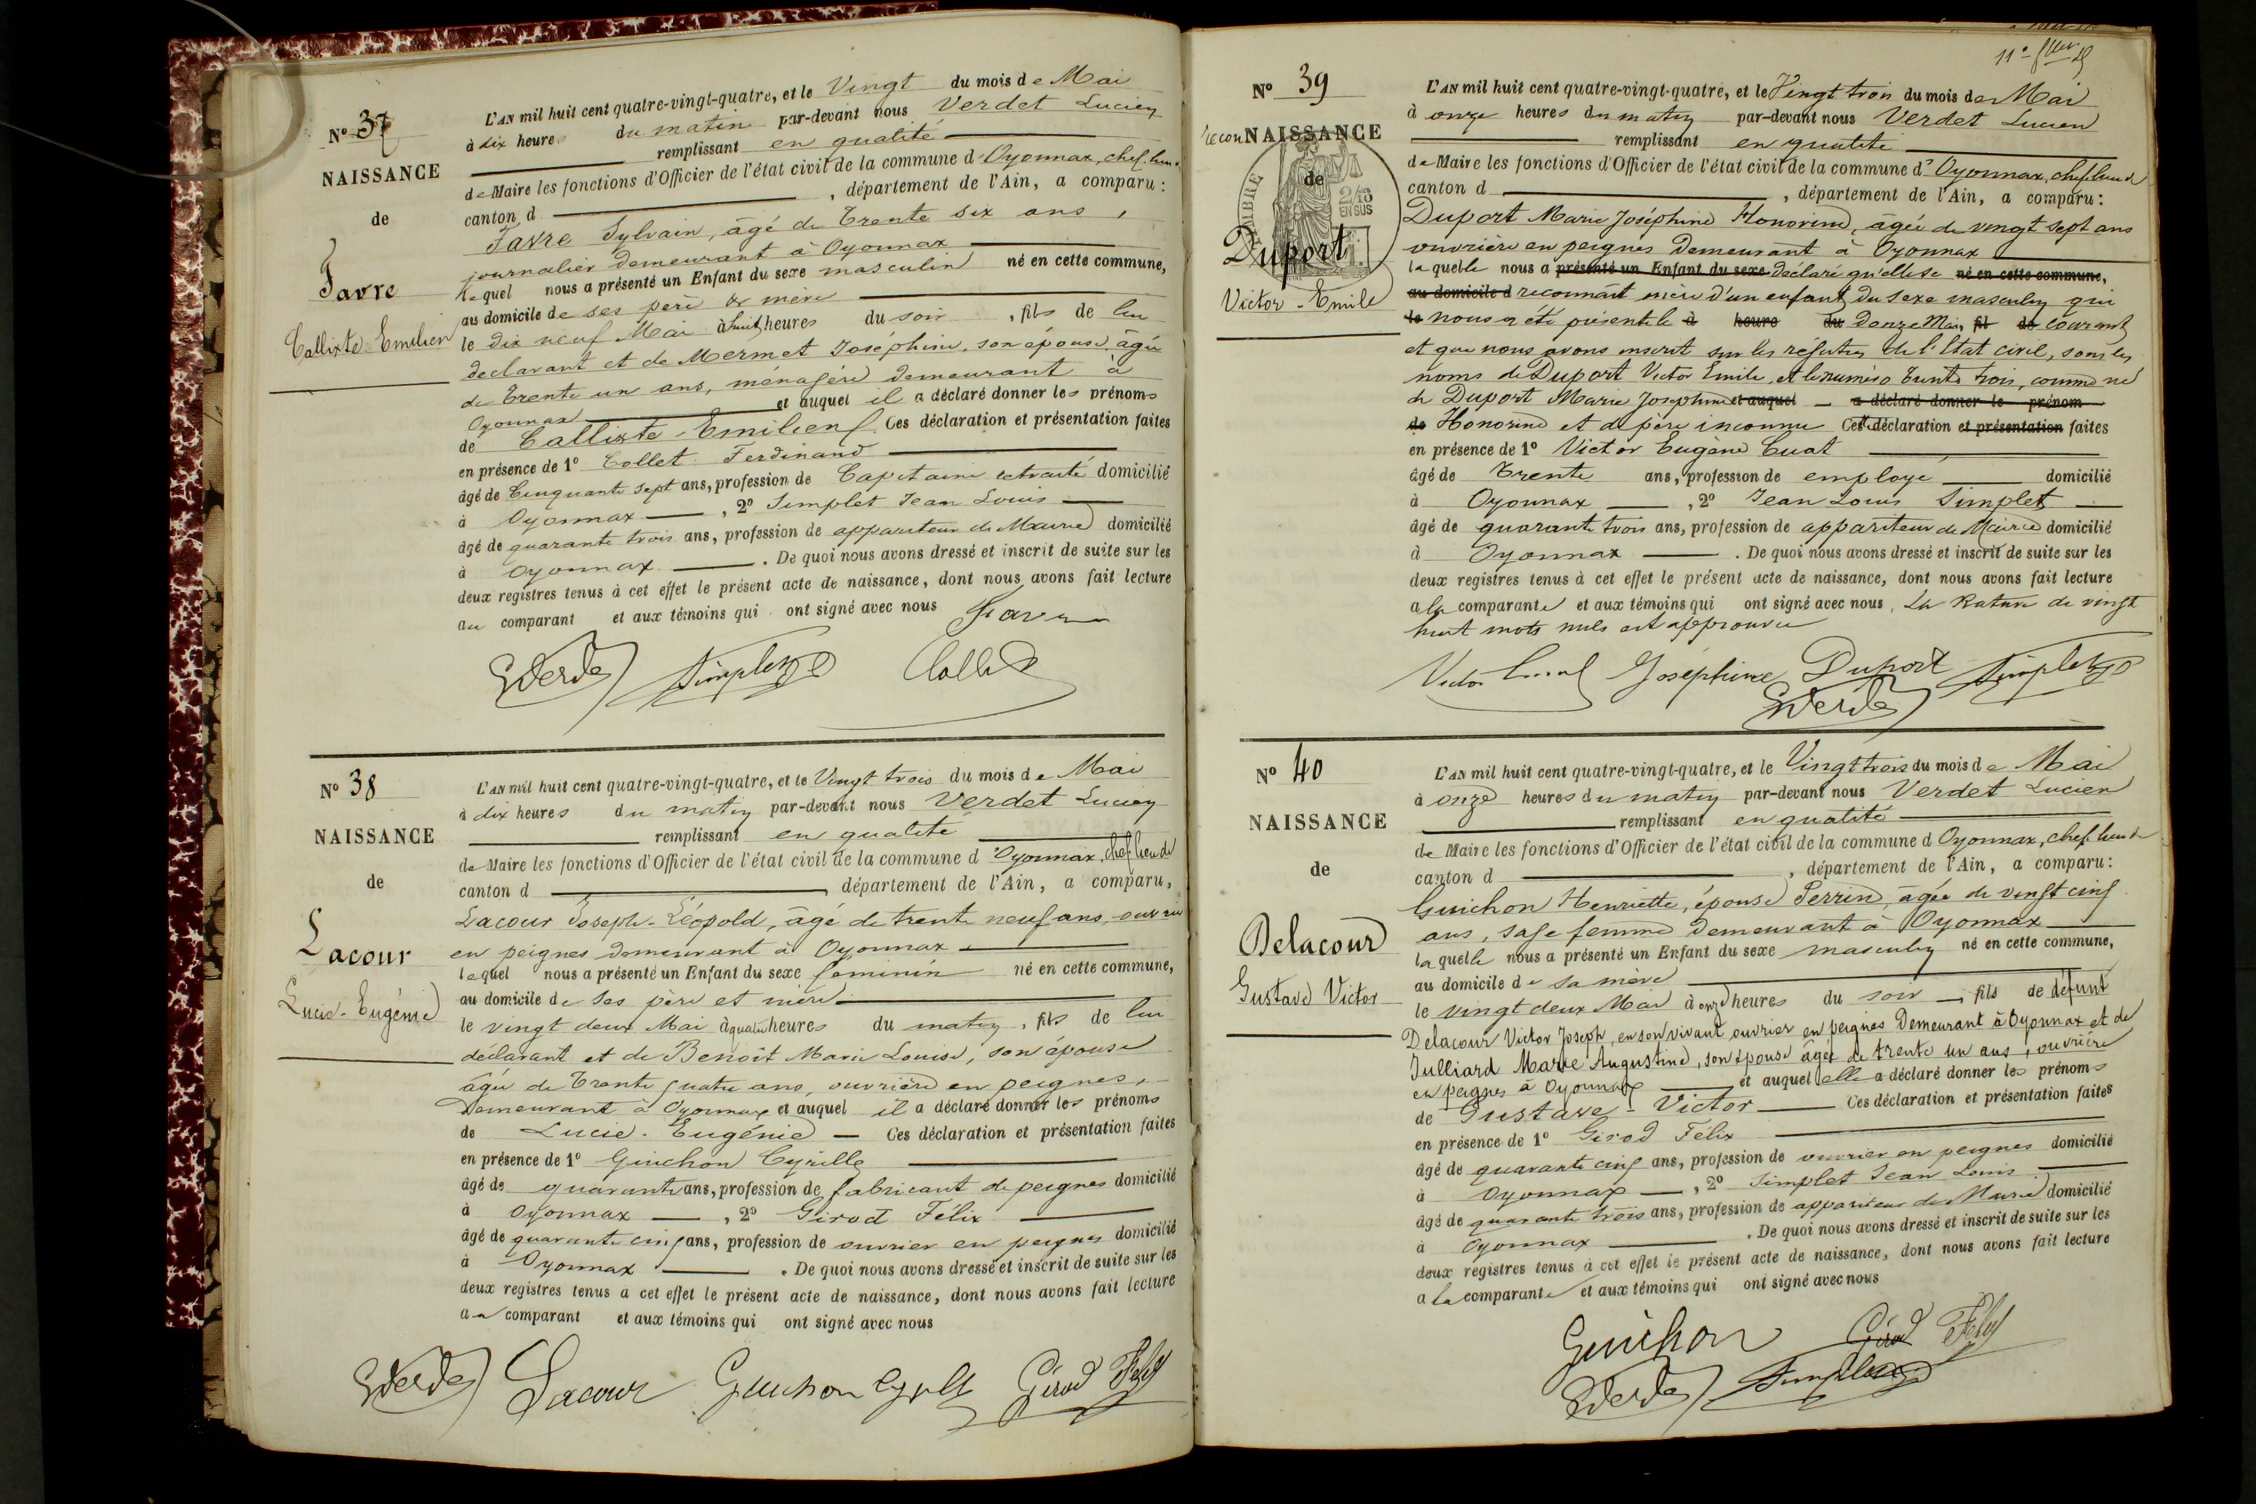 Nº 37
NAISSANCE
de
Favre
Callixte-Emilien
L'AN mil huit cent quatre-vingt-quatre, et le Vingt du mois de Mai
à dix heures du matin par-devant nous Verdet Lucien
remplissant en qualité
de Maire les fonctions d'Officier de l'état civil de la commune d'Oyonnax, chef lieu de
canton d , département de l'Ain, a comparu :
Favre Sylvain, âgé de Trente six ans,
journalier demeurant à Oyonnax
lequel nous a présenté un Enfant du sexe masculin né en cette commune,
au domicile de ses père & mère
le dix neuf Mai à huit heures du soir, fils de lui
declarant et de Mermet Joséphine, son épouse, âgée
de Trente un ans, ménagère demeurant à
Oyonnax et auquel il a déclaré donner les prénoms
de Callixte-Emilien Ces déclaration et présentation faites
en présence de 1º Collet Ferdinand
âgé de Cinquante sept ans, profession de Capitaine retraité domicilié
à Oyonnax , 2º Simplet Jean Louis
âgé de quarante trois ans, profession de appariteur de Mairie domicilié
à Oyonnax . De quoi nous avons dressé et inscrit de suite sur les
deux registres tenus à cet effet le présent acte de naissance, dont nous avons fait lecture
au comparant et aux témoins qui ont signé avec nous Favre
LVerdet Simplet Collet
Nº 38
NAISSANCE
de
Lacour
Lucie-Eugénie
L'AN mil huit cent quatre-vingt-quatre, et le Vingt trois du mois de Mai
à dix heures du matin par-devant nous Verdet Lucien
remplissant en qualité
de Maire les fonctions d'Officier de l'état civil de la commune d'Oyonnax, chef lieu de
canton d , département de l'Ain, a comparu,
Lacour Joseph-Léopold, âgé de trente neuf ans, ouvrier
en peignes demeurant à Oyonnax
lequel nous a présenté un Enfant du sexe feminin né en cette commune,
au domicile de ses père et mère
le vingt deux Mai à quatre heures du matin, fils de lui
déclarant et de Benoit Marie Louise, son épouse
âgée de Trente quatre ans, ouvrière en peignes,
Demeurant à Oyonnax et auquel il a déclaré donner les prénoms
de Lucie-Eugénie Ces déclaration et présentation faites
en présence de 1º Guichon Cyrille
âgé de quarante ans, profession de fabricant de peignes domicilié
à Oyonnax , 2º Girod Félix
âgé de quarante cinq ans, profession de ouvrier en peignes domicilié
à Oyonnax . De quoi nous avons dressé et inscrit de suite sur les
deux registres tenus à cet effet le présent acte de naissance, dont nous avons fait lecture
au comparant et aux témoins qui ont signé avec nous
LVerdet Lacour Guichon Cyrille Girod Félix
Nº 39
NAISSANCE
de
TIMBRE
2/10
EN SUS
Duport
Victor-Emile
L'AN mil huit cent quatre-vingt-quatre, et le Vingt trois du mois de Mai
à onze heures du matin par-devant nous Verdet Lucien
remplissant en qualité
de Maire les fonctions d'Officier de l'état civil de la commune d'Oyonnax, chef lieu de
canton d , département de l'Ain, a comparu :
Duport Marie Joséphine Honorine, âgée de vingt sept ans
ouvrière en peignes Demeurant à Oyonnax
laquelle nous a présenté un Enfant du sexe déclaré qu'elle se né en cette commune,
au domicile d reconnait mère d'un enfant du sexe masculin qui
le nous a été présenté le à heure du Douze Mai, fil de courant
et que nous avons inscrit sur les régistres de l'Etat civil, sous les
noms de Duport Victor Emile, et le numéro Trente trois, comme né
de Duport Marie Joséphine et auquel a déclaré donner le prénom
de Honorine et de père inconnu Cette déclaration et présentation faites
en présence de 1º Victor Eugène Cuat
âgé de Trente ans, profession de employé domicilié
à Oyonnax , 2º Jean Louis Simplet
âgé de quarante trois ans, profession de appariteur de Mairie domicilié
à Oyonnax . De quoi nous avons dressé et inscrit de suite sur les
deux registres tenus à cet effet le présent acte de naissance, dont nous avons fait lecture
a la comparante et aux témoins qui ont signé avec nous, La Rature de vingt
huit mots nuls est approuvée
Victor Cuat Joséphine Duport Simplet
LVerdet
Nº 40
NAISSANCE
de
Delacour
Gustave Victor
L'AN mil huit cent quatre-vingt-quatre, et le Vingt trois du mois de Mai
à onze heures du matin par-devant nous Verdet Lucien
remplissant en qualité
de Maire les fonctions d'Officier de l'état civil de la commune d Oyonnax, chef lieu de
canton d , département de l'Ain, a comparu :
Guichon Henriette, épouse Perrin, âgée de vingt cinq
ans, sage femme Demeurant à Oyonnax
laquelle nous a présenté un Enfant du sexe masculin né en cette commune,
au domicile de sa mère
le vingt deux Mai à onze heures du soir, fils de défunt
Delacour Victor Joseph, en son vivant ouvrier en peignes Demeurant à Oyonnax et de
Julliard Marie Augustine, son épouse âgée de trente un ans, ouvrière
en peignes à Oyonnax et auquel elle a déclaré donner les prénoms
de Gustave-Victor Ces déclaration et présentation faites
en présence de 1º Girod Félix
âgé de quarante cinq ans, profession de ouvrier en peignes domicilié
à Oyonnax , 2º Simplet Jean Louis
âgé de quarante trois ans, profession de appariteur de Mairie domicilié
à Oyonnax . De quoi nous avons dressé et inscrit de suite sur les
deux registres tenus à cet effet le présent acte de naissance, dont nous avons fait lecture
a la comparante et aux témoins qui ont signé avec nous
Guichon Girod Félix
LVerdet Simplet